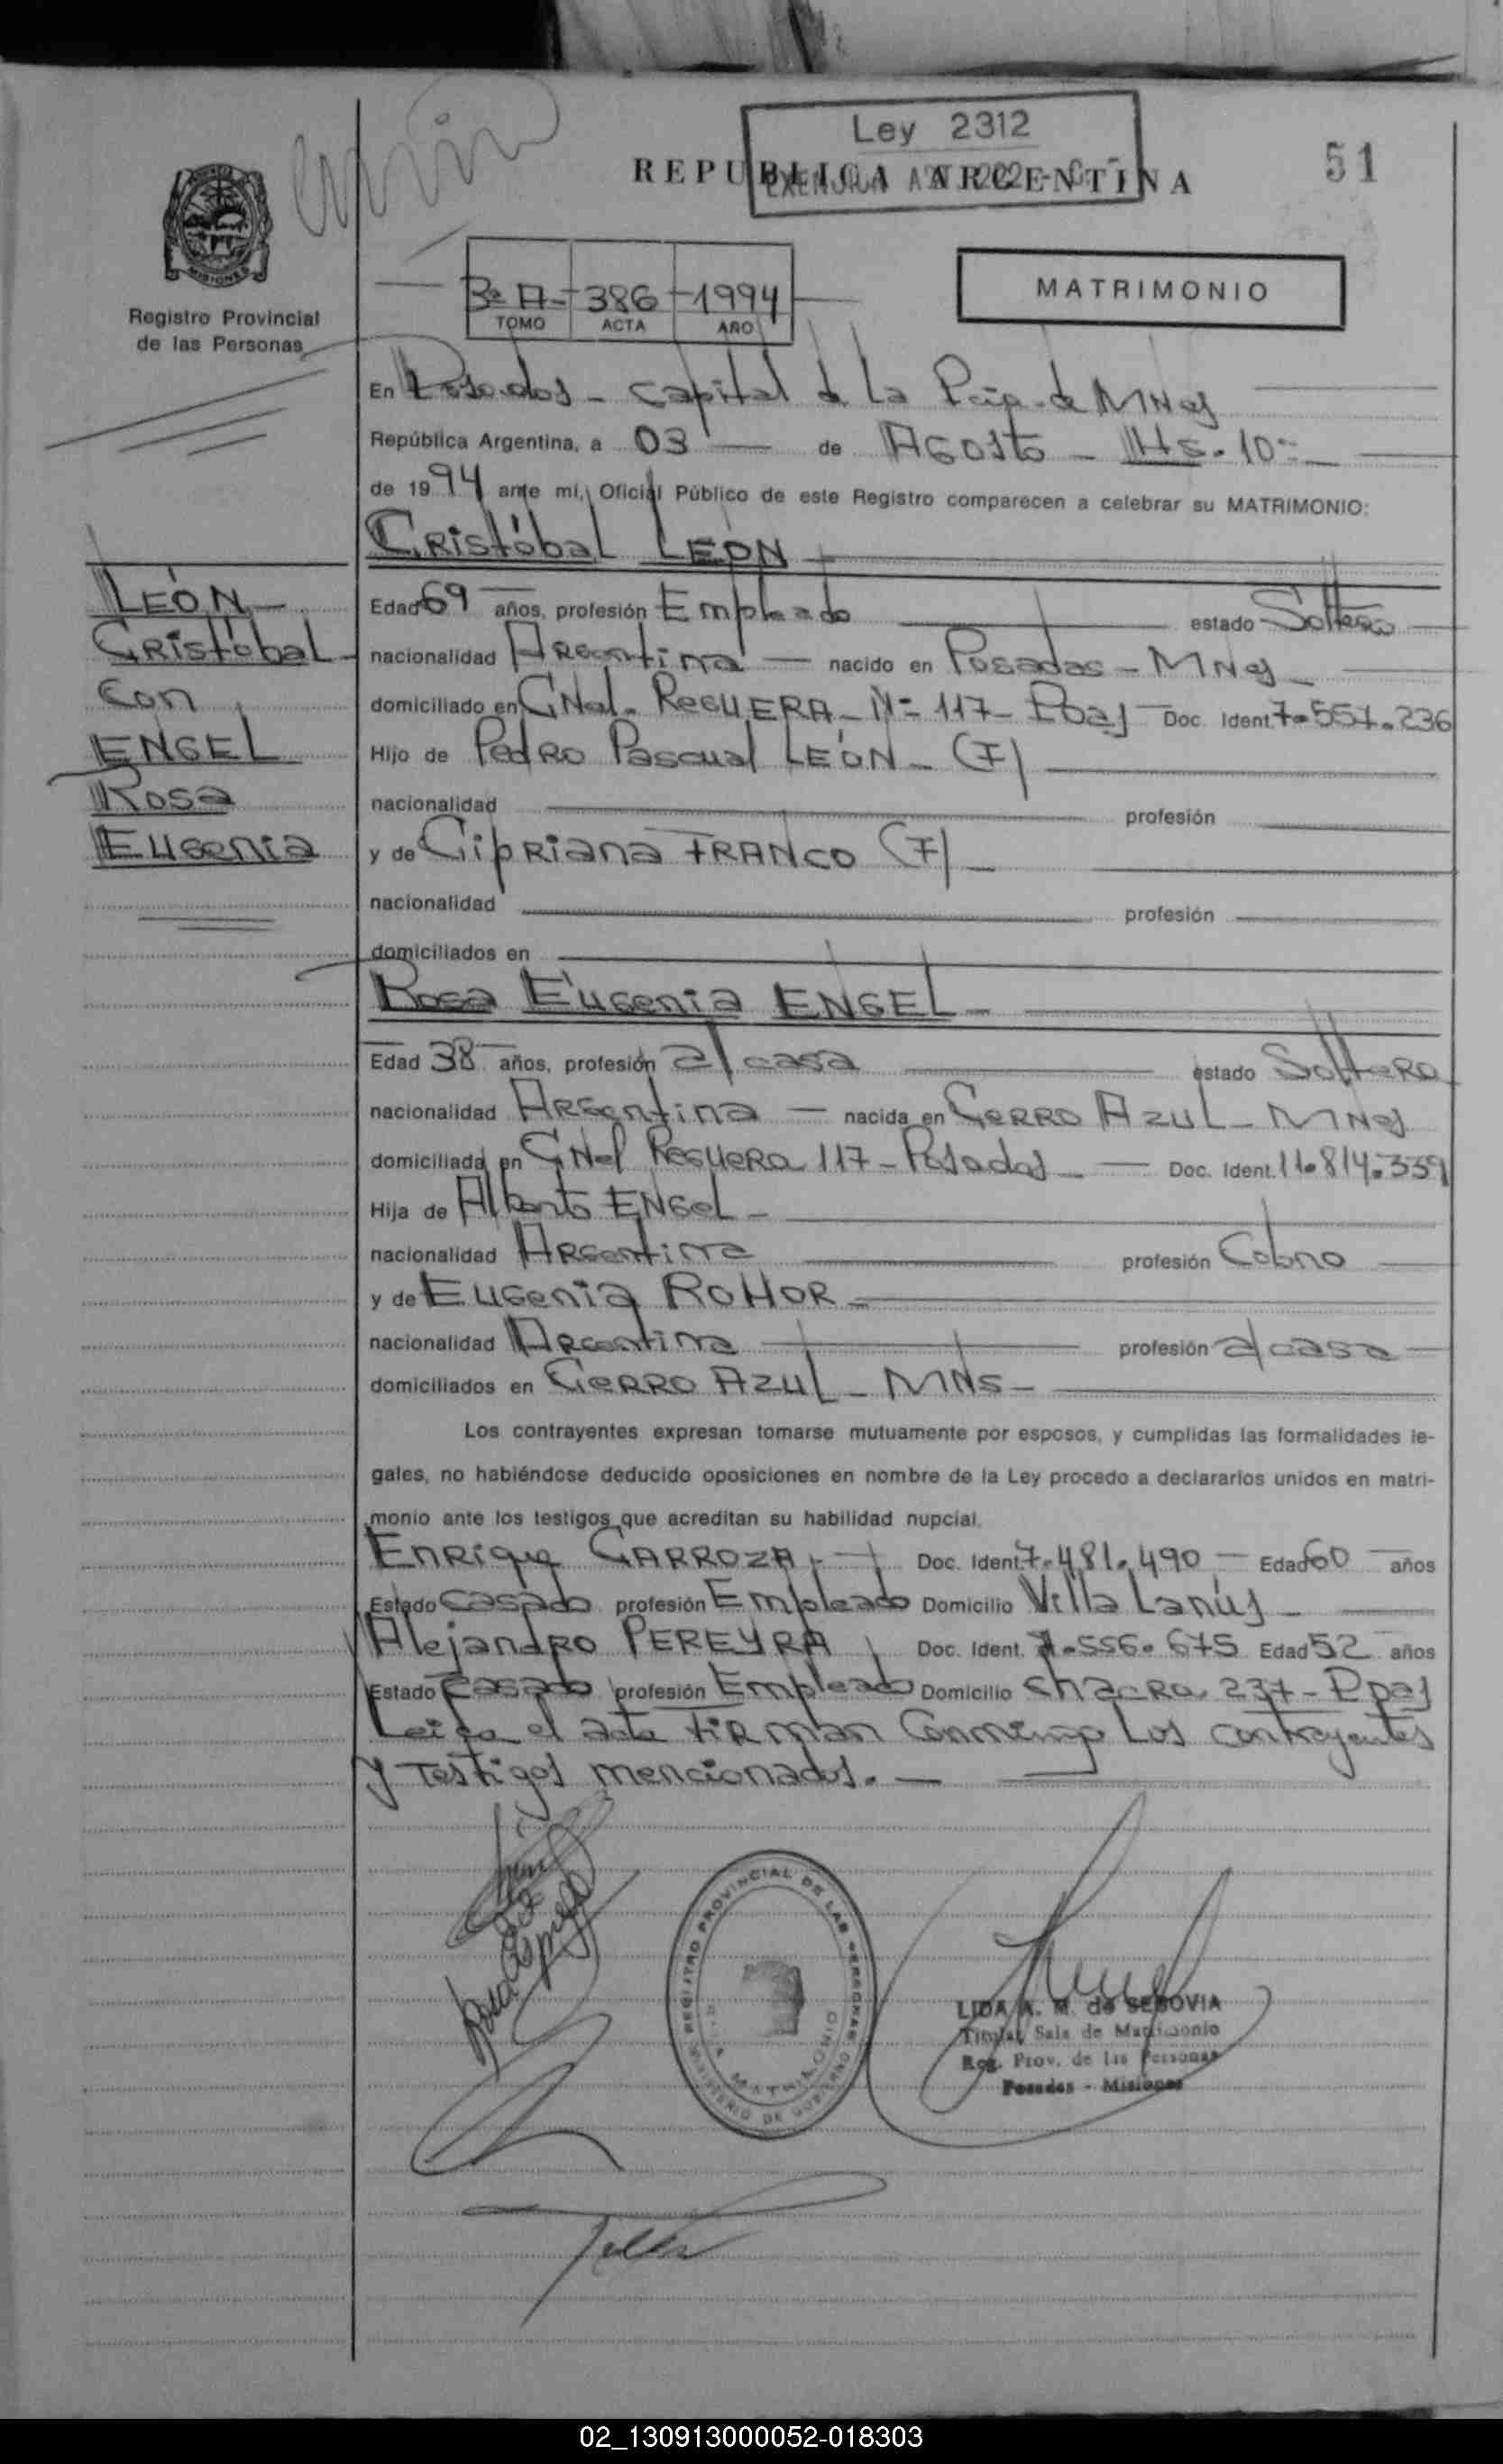 Ley 2312
REPUBLICA ARGENTINA
51
MISIONES
Registro Provincial
de las Personas
3º A - 386 - 1994
TOMO ACTA AÑO
MATRIMONIO
En Posadas - Capital de La Pcia. de MNes
República Argentina, a 03 de AGosto - Hs. 10
de 1994 ante mi, Oficial Público de este Registro comparecen a celebrar su MATRIMONIO:
CRistóbal LEÓN
LEÓN
CRistóbal
Con
ENGEL
Rosa
EUGenia
Edad 69 años, profesión Empleado estado Soltero
nacionalidad ARGentina nacido en Posadas - MNes
domiciliado en GNal. ReGUERA - Nº 117 - Pdas Doc. Ident. 7.551.236
Hijo de PedRo Pascual LEÓN - (F)
nacionalidad profesión
y de CipRiana FRANCO (F)
nacionalidad profesión
domiciliados en
Rosa EuGenia ENGEL
Edad 38 años, profesión a/casa estado SolteRa
nacionalidad ARGentina nacida en CeRRo AZUL - MNes
domiciliada en GNel ReGueRa 117 - Posadas Doc. Ident. 11.814.339
Hija de Alberto ENGeL
nacionalidad ARGentina profesión Colono
y de EUGenia ROHOR
nacionalidad ARGentina profesión a/casa
domiciliados en CeRRo AZUL - MNS
Los contrayentes expresan tomarse mutuamente por esposos, y cumplidas las formalidades le-
gales, no habiéndose deducido oposiciones en nombre de la Ley procedo a declararlos unidos en matri-
monio ante los testigos que acreditan su habilidad nupcial.
EnRique GARROZA Doc. Ident. 7.481.490 Edad 60 años
Estado casado profesión Empleado Domicilio Villa Lanús
AlejandRo PEREYRA Doc. Ident. 7.556.675 Edad 52 años
Estado casado profesión Empleado Domicilio ChacRa 237 - Ppas
Leida el acta FiRman Conmigo Los contrayentes
y Testigos mencionados.
Rosa E Engel
REGISTRO PROVINCIAL DE LAS PERSONAS
MINISTERIO DE GOBIERNO
MATRIMONIO
LIDA A. M. de SEGOVIA
Titular Sala de Matrimonio
Reg. Prov. de las Personas
Posadas - Misiones
02_130913000052-018303